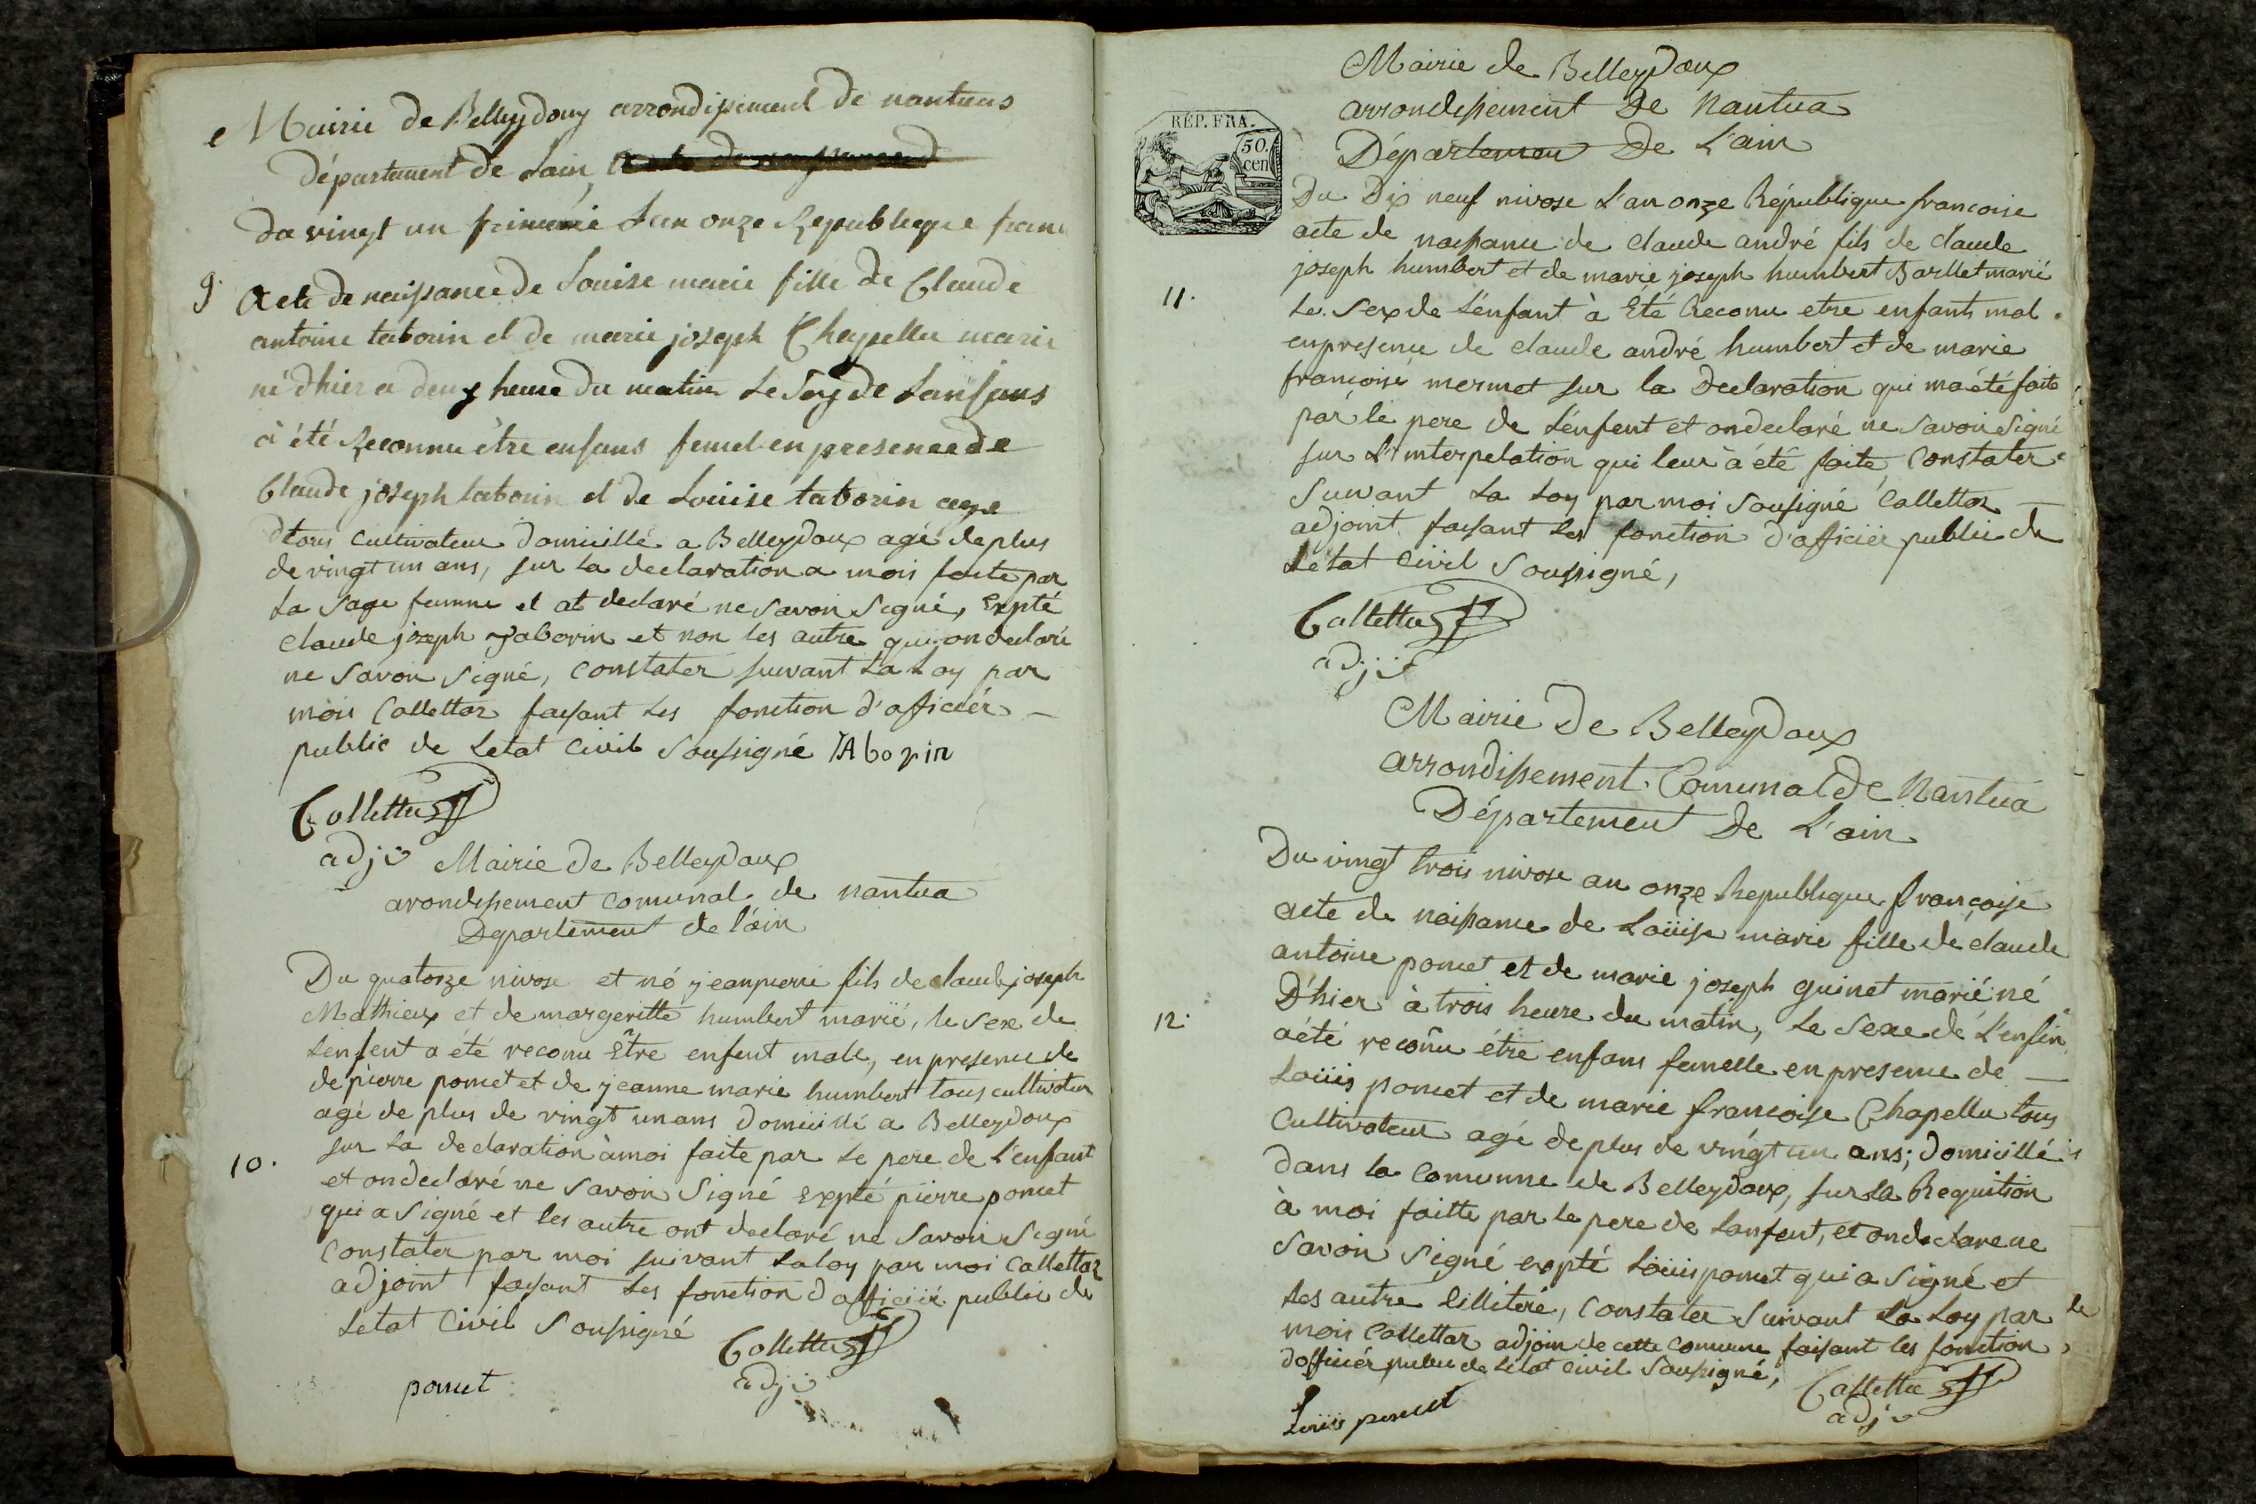 Mairie de Belleydoux arrondissement de nantua
département de Lain,
du vingt un frimaire Lan onze Republique fran
9 Acte de naissance de Louise marie fille de Claude
antoine taborin et de marie joseph Chapellu marié
né dhier a deux heure du matin Le Sex de Lanfans
à été Reconnu être enfans femel en presence de
Claude joseph taborin et de Louise taborin
tous cultivateur domicillé a Belleydoux agé de plus
de vingt un ans, sur la declaration a mois faite par
La Sage femme et at declaré ne savoir Signé, Expté
Claude joseph Taborin et non les autre qui on declaré
ne Savoir Signé, constater suivant La Loy par
mois Callettaz faisant Les fonction d'officiér
public de Letat Civil Soussigné TAborin
Collettaz
adjt
Mairie de Belleydoux
arondissement comunal de nantua
Département de l'ain
Du quatorze nivose et né jeanpierre fils de claude joseph
Mathieux et de margeritte humbert marié, le sexe de
Lenfent a été reconu Être enfent male, en presence de
de pierre poncet et de jeanne marie humbert tous cultivateur
agé de plus de vingt un ans domicillé a Belleydoux
10. sur La declaration à moi faite par Le pere de L'enfant
et on declaré ne Savoir Signé Expté pierre poncet
qui a Signé et les autre ont declaré ne Savoir Signé
Constater par moi suivant La loy par moi Callettaz
adjoint faisant Les fonction d officiér public de
Letat Civil Soussigné Collettaz
poncet adjt
Mairie de Belleydoux
arrondissement De Nantua
Département De L'ain
RÉP. FRA.
50. cen
Du Dix neuf nivose L'an onze République francoise
acte de naissance de claude andré fils de claude
joseph humbert et de marie joseph humbert Barllet marié
11. Le Sex de L'enfant à Eté Reconu etre enfants mal
en presence de claude andré humbert et de marie
françoise mermet sur la Declaration qui ma été faite
par le pere de L'enfent et on declaré ne Savoir Signé
sur L'interpelation qui leur à été faite, Constater
Suivant La Loy par moi Sousigné Callettaz
adjoint faisant Les fonction d'officiér public de
Létat Civil Soussigné,
Callettaz
adjt
Mairie De Belleydoux
arrondissement Comunal de Nantua
Département De L'ain
Du vingt trois nivose an onze Republique françoise
acte de naissance de Loüise marie fille de claude
antoine poncet et de marie joseph guinet marié né
D'hier à trois heure du matin, Le Sexe de L'enfin
12. a été reconu étre enfans femelle en presence de
Loüis poncet et de marie francoise Chapellu tous
Cultivateur agé de plus de vingt un ans; Domicillé
dans la Comunne de Belleydoux, sur La Requition
à moi faitte par le pere de Lanfent, et on déclare ne
Savoir Signé expté Loüis poncet qui a Signé et
Les autre lilliteré, Constater Suivant La Loy par
mois Callettaz adjoin de cette Comune faisant les fonction
dofficiér public de Létat Civil Soussigné,
Callettaz
adjt
Loüis poncet